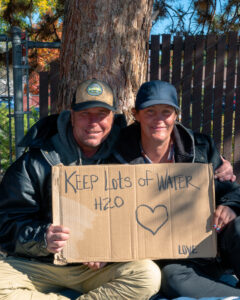 KEEP LOTS OF WATER
H2O
LOVE